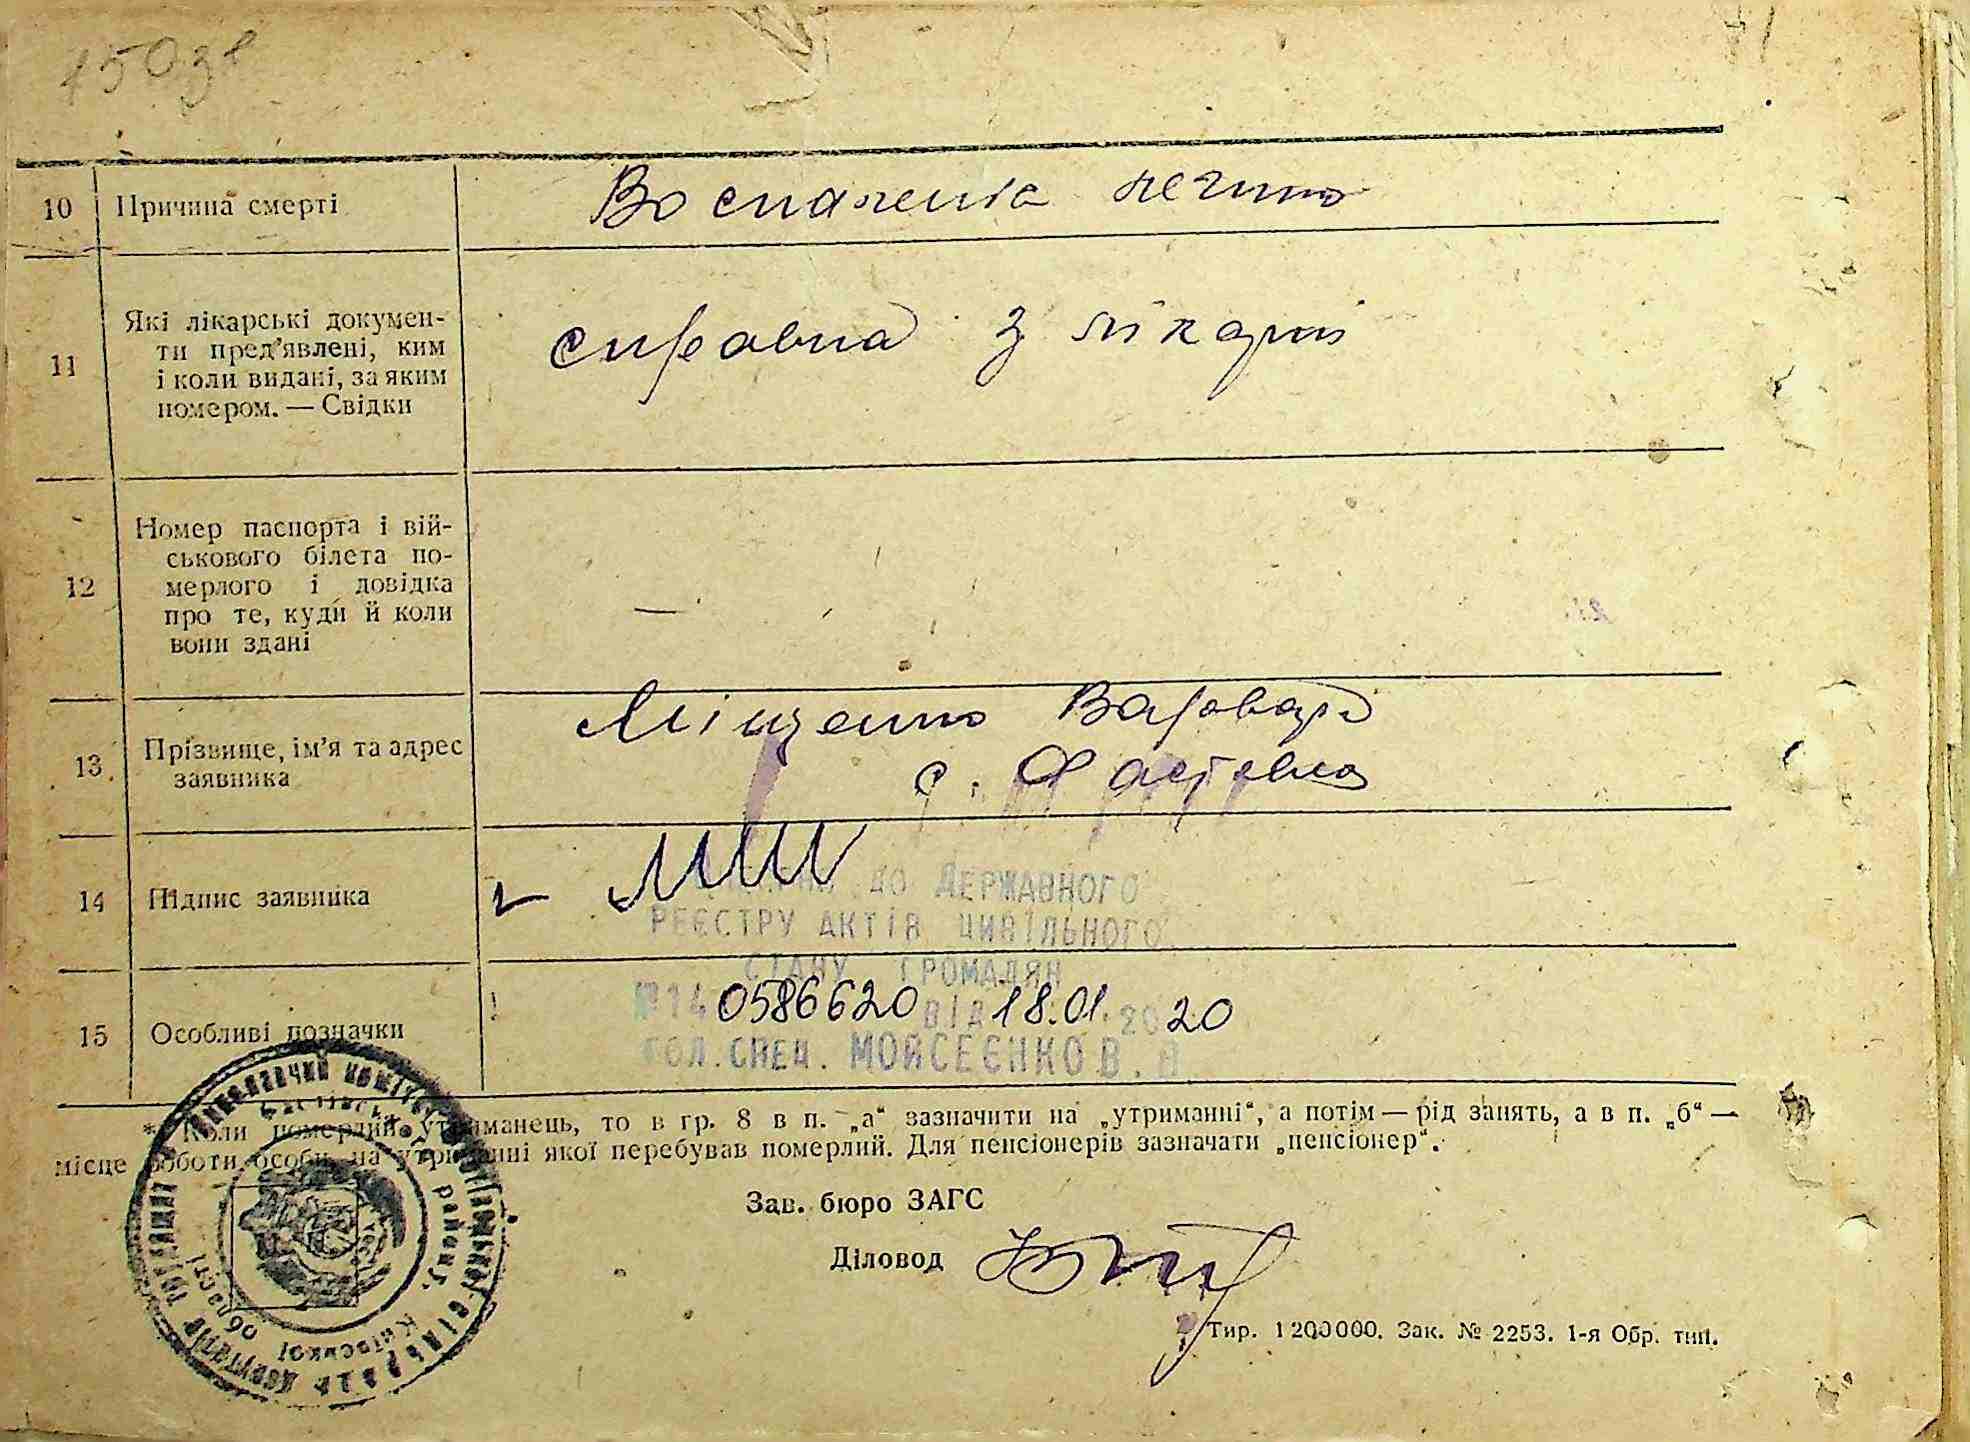 150зв
10 Причина смерті Воспаленіє печині
11 Які лікарські докумен-
ти пред'явлені, ким
і коли видані, за яким
номером. — Свідки
справка з лікарні
12 Номер паспорта і вій-
ськового білета по-
мерлого і довідка
про те, куди й коли
вони здані
—
13 Прізвище, ім'я та адрес
заявника
Міщенко Варвара
с. Фастівка
14 Підпис заявника
до ДЕРЖАВНОГО
РЕЄСТРУ АКТІВ ЦИВІЛЬНОГО
СТАНУ ГРОМАДЯН
№14 0586620 ВІД 18.01.2020
ГОЛ.СПЕЦ. МОЙСЕЄНКО В.В
15 Особливі позначки
* Коли померлий утриманець, то в гр. 8 в п. „а“ зазначити на „утриманні“, а потім — рід занять, а в п. „б“ —
місце роботи особи, на утриманні якої перебував померлий. Для пенсіонерів зазначати „пенсіонер“.
Зав. бюро ЗАГС
Діловод
Тир. 1200000. Зак. № 2253. 1-я Обр. тип.
району, Київської області